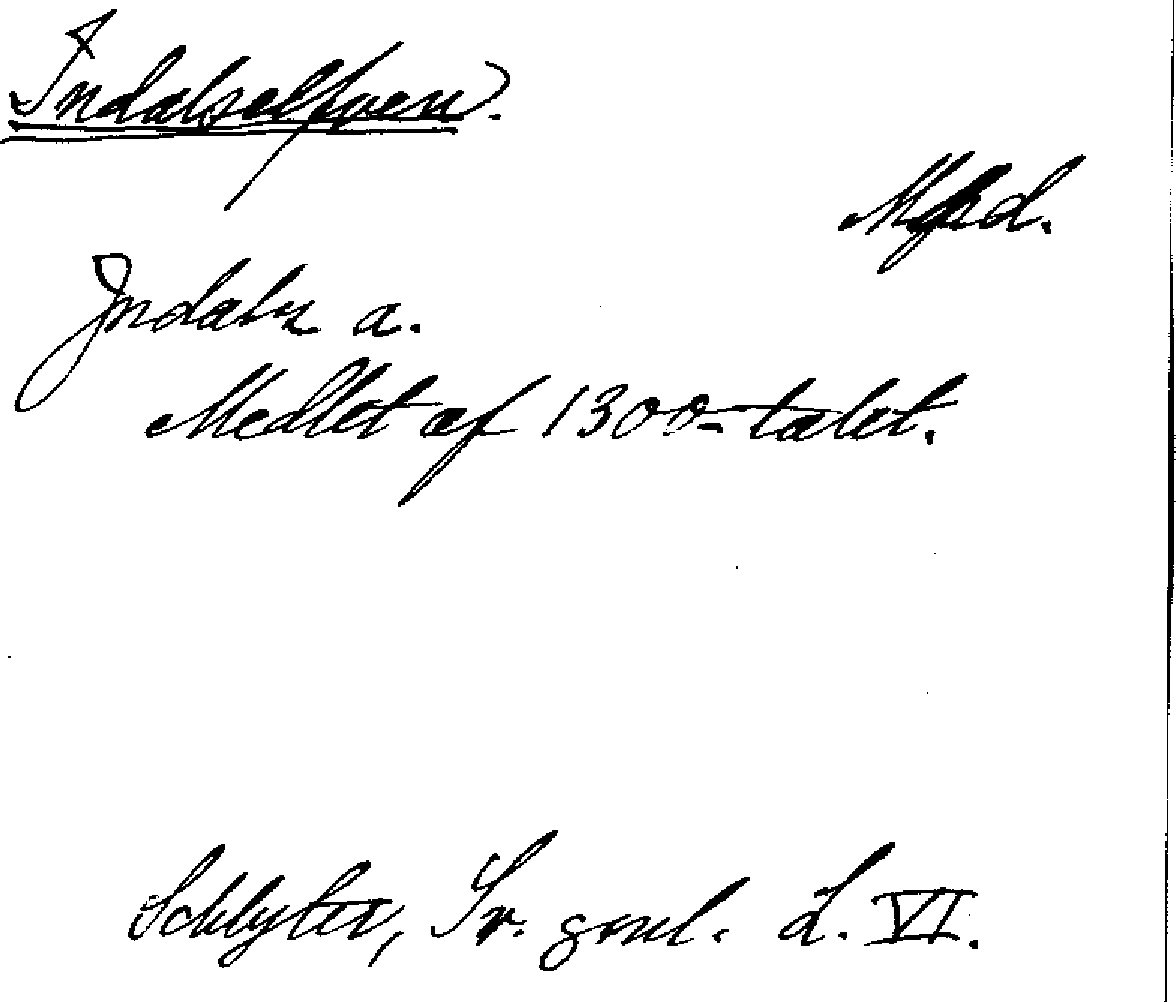 Indalselfven.
Mpd.
Jndals a.
Medlet af 1300-talet.
Schlyter, Sv. gml. L. VI.